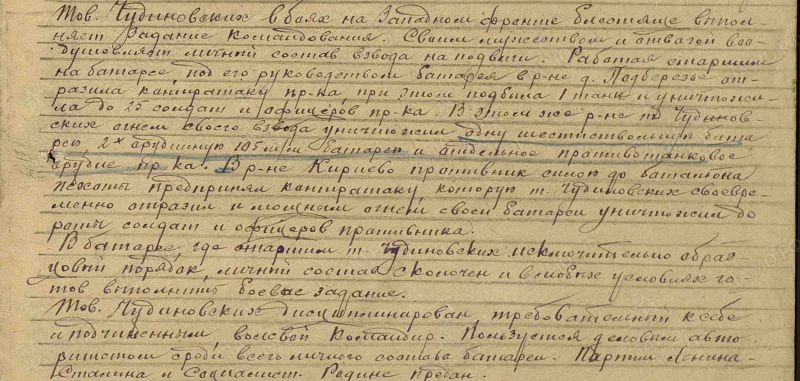 Тов. Чудиновских в боях на Западном фронте блестяще выпол-
няет задание командования. Своим мужеством и отвагой воо-
душевляет личный состав взвода на подвиги. Работая старшим
на батарее, под его руководством батарея в р-не д. Подберезье от-
разила контратаку пр-ка, при этом подбила 1 танк и уничтожи-
ла до 25 солдат и офицеров пр-ка. В этом же р-не т. Чудинов-
ских огнем своего взвода уничтожил одну шестиствольную бата-
рею, 2х орудийную 105 м/м батарею и отдельное противотанковое
орудие пр-ка. В р-не Кириево противник силою до батальона
пехоты предпринял контратаку которую т. Чудиновских своевре-
менно отразил и мощным огнем своей батареи уничтожил до
роты солдат и офицеров противника.
В батарее, где старшим т. Чудиновских исключительно образ-
цовый порядок, личный состав сколочен и в любых условиях го-
тов выполнить боевое задание.
Тов. Чудиновских дисциплинирован, требовательный к себе
и подчиненным, волевой командир. Пользуется деловым авто-
ритетом среди всего личного состава батареи. Партии Ленина-
Сталина и Социалист. Родине предан.